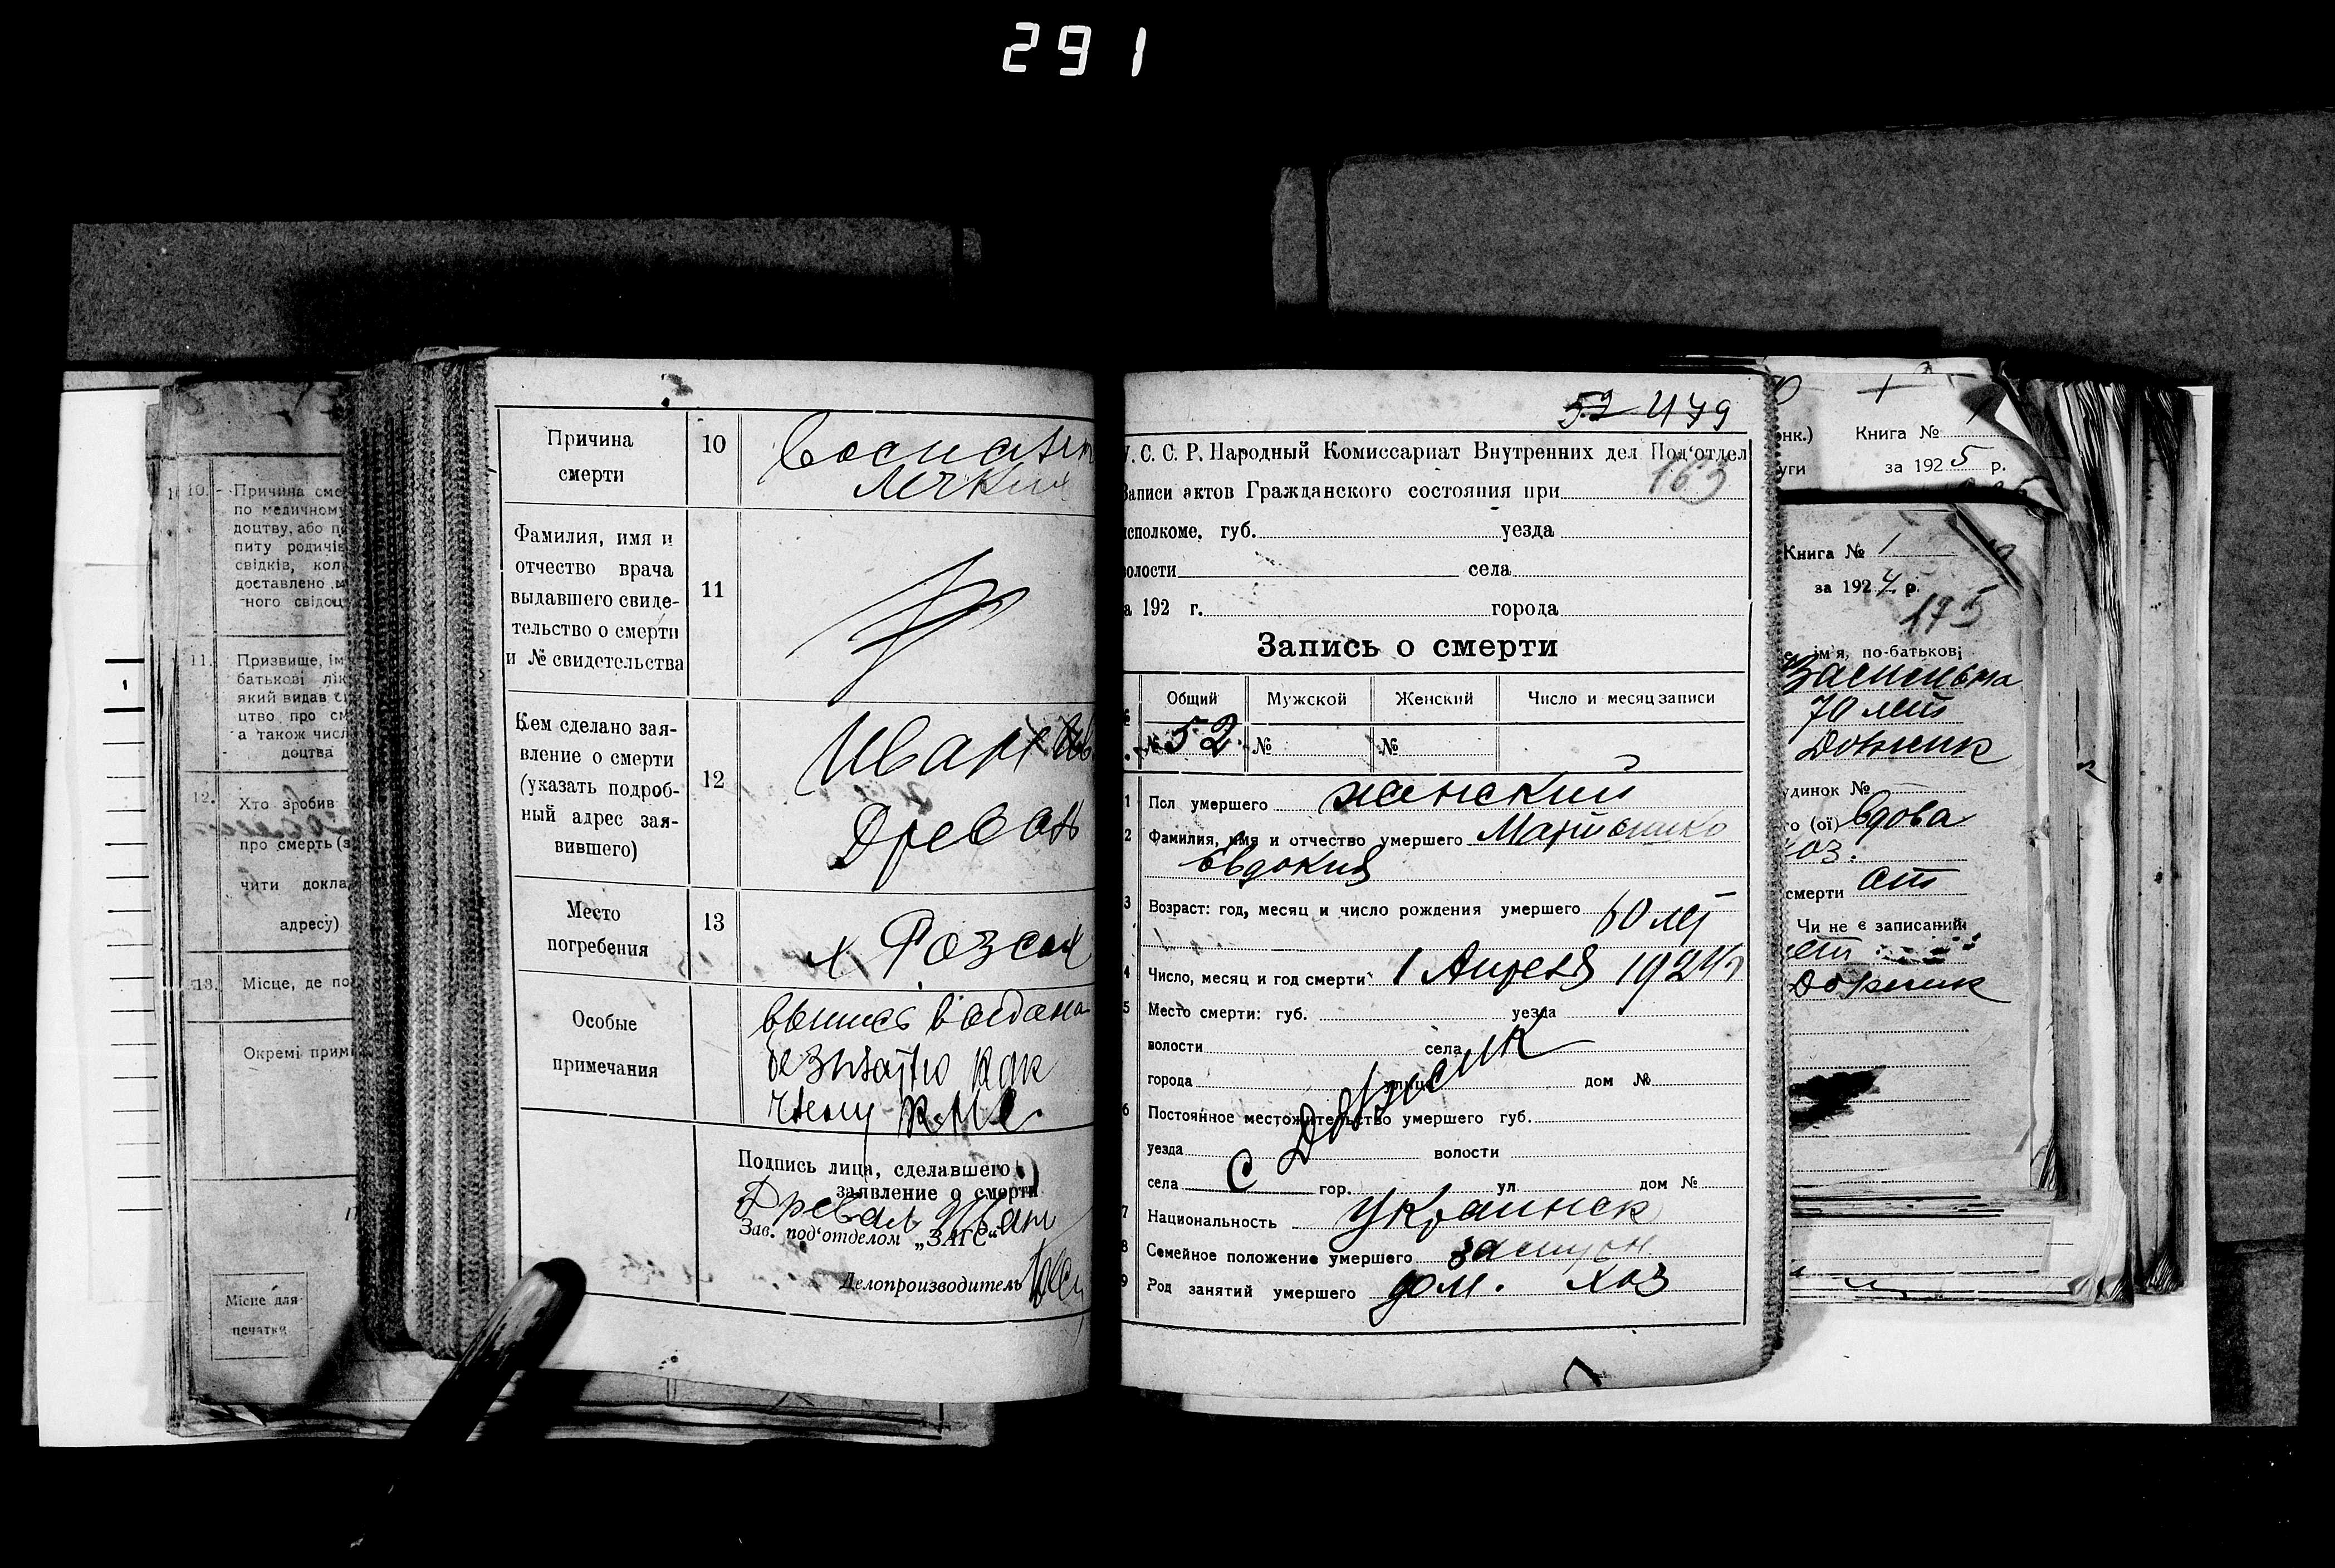 291
10.- Причина сме
по медичному
доцтву, або п
питу родичів
свідків, кол
доставлено м
ного свідоц
11. Призвище, ім
батькові лік
який видав с
цтво про см
а також числ
доцтва
12. Хто зробив
про смерть (з
чити докла
адресу)
13. Місце, де по
Окремі примі
Місце для
печатки
Причина
смерти
10
Воспален
легких
Фамилия, имя и
отчество врача
выдавшего свиде-
тельство о смерти
и № свидетельства
11
Кем сделано зая-
вление о смерти
(указать подроб-
ный адрес зая-
вившего)
12
Иван Ив
Древал
Место
погребения
13
Особые
примечания
выпись выдана
безплатно как
члену
Подпись лица, сделавшего
заявление о смерти
Древал Иван
Зав. под‘отделом „ЗАГС“
Делопроизводитель
52 479
У. С. С. Р. Народный Комиссариат Внутренних дел Под‘отдел
163
Записи актов Гражданского состояния при
исполкоме, губ. уезда
волости села
за 192 г. города
Запись о смерти
Общий Мужской Женский Число и месяц записи
№ 52 № №
1 Пол умершего женский
2 Фамилия, имя и отчество умершего
Евдокия
3 Возраст: год, месяц и число рождения умершего 60 лет
4 Число, месяц и год смерти 1 Апреля 1924 г
5 Место смерти: губ. уезда
волости села
города улица дом №
6 Постоянное местожительство умершего губ.
уезда волости
села С Довжик гор. ул дом №
7 Национальность украинск
8 Семейное положение умершего замужн
9 Род занятий умершего дом. хоз
Книга №
за 1925 р.
Книга № 1
за 1924 р.
175
ім'я, по-батькові
70 лет
Довжик
удинок №
го (ої) вдова
хоз.
смерти от
Чи не є записаний
Довжик